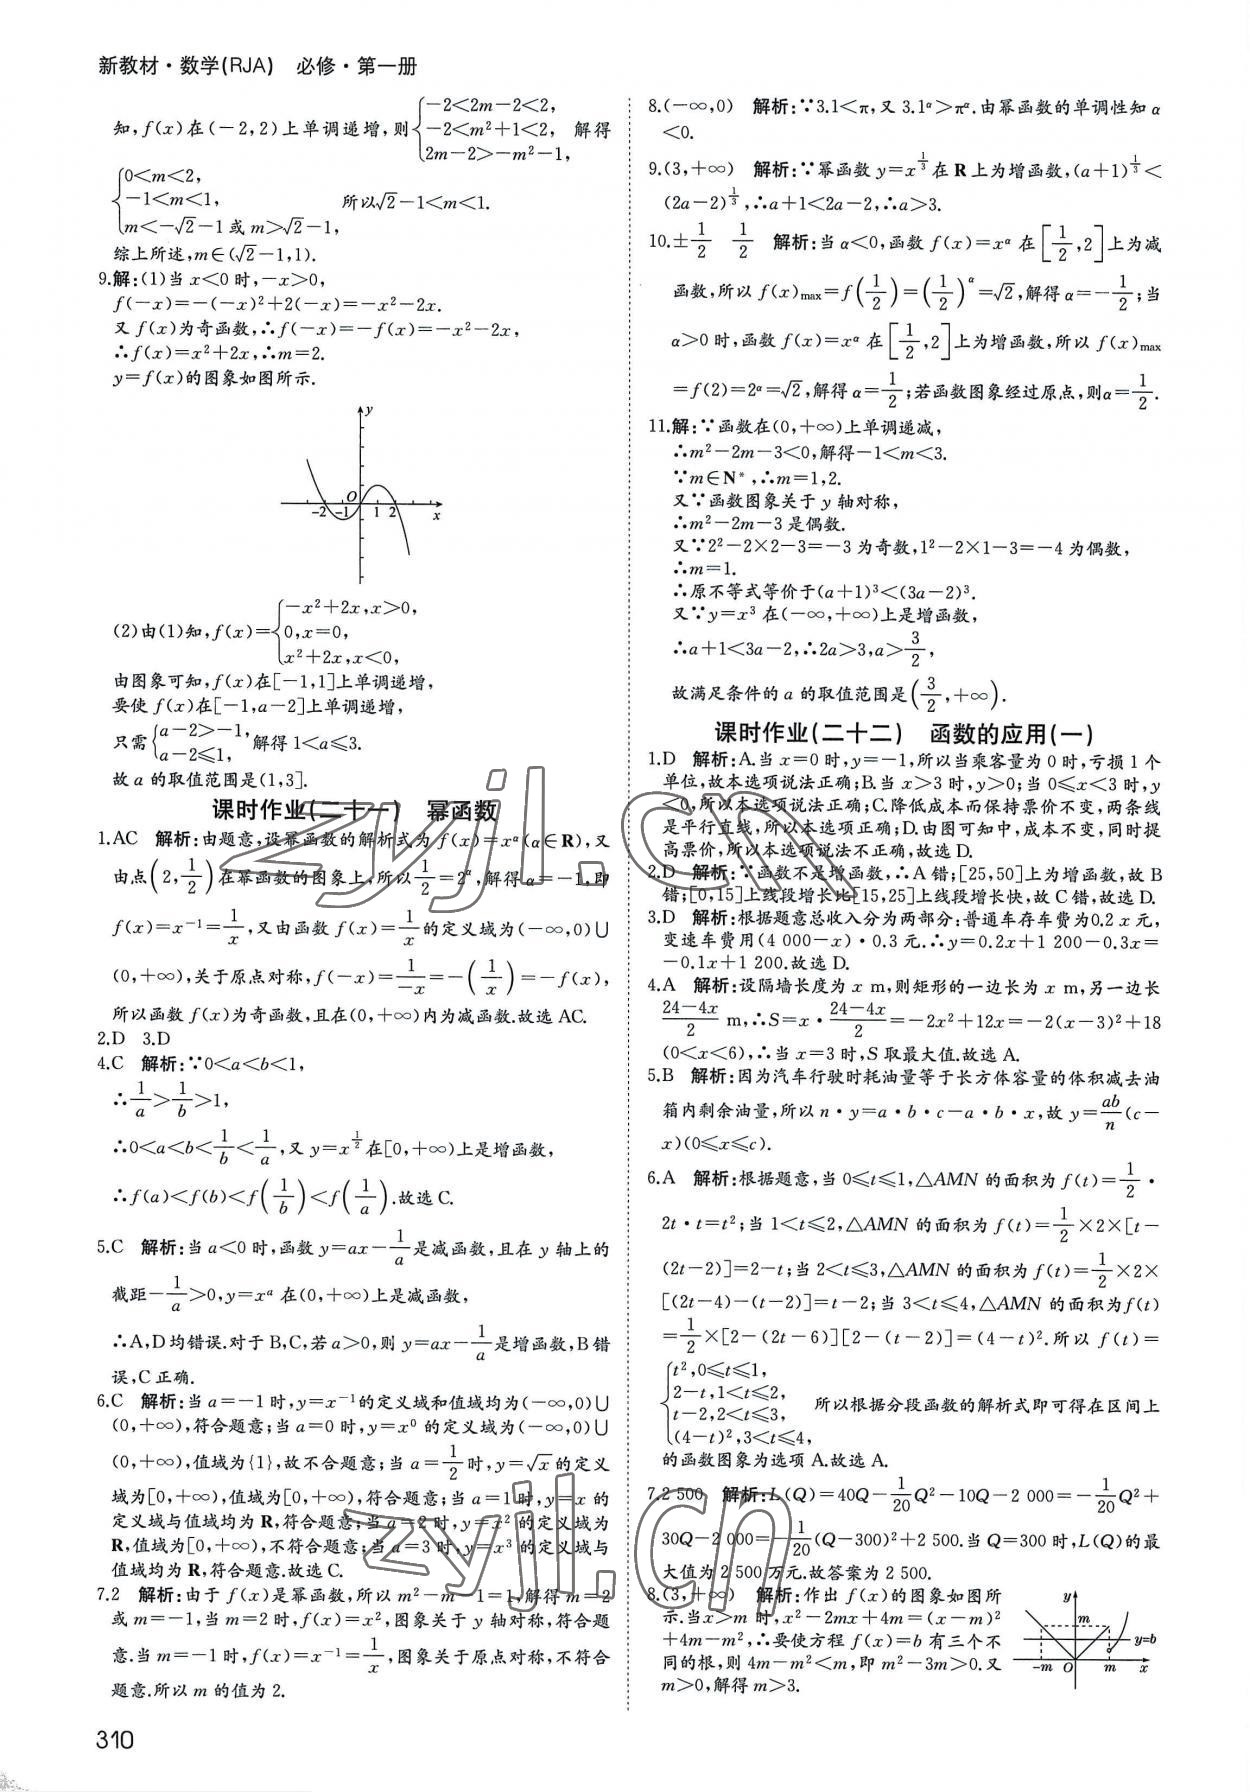 新教材·数学(RJA) 必修·第一册
知,f(x)在(-2,2)上单调递增,则{-2<2m-2<2, -2<m²+1<2, 2m-2>-m²-1, 解得
{0<m<2, -1<m<1, m<-√2-1或m>√2-1, 所以√2-1<m<1.
综上所述,m∈(√2-1,1).
9.解:(1)当x<0时,-x>0,
f(-x)=-(-x)²+2(-x)=-x²-2x.
又f(x)为奇函数,∴f(-x)=-f(x)=-x²-2x,
∴f(x)=x²+2x,∴m=2.
y=f(x)的图象如图所示.
y
O
-2 -1 1 2 x
(2)由(1)知,f(x)={-x²+2x,x>0, 0,x=0, x²+2x,x<0,
由图象可知,f(x)在[-1,1]上单调递增,
要使f(x)在[-1,a-2]上单调递增,
只需{a-2>-1, a-2≤1, 解得1<a≤3.
故a的取值范围是(1,3].
课时作业(二十一) 幂函数
1.AC 解析:由题意,设幂函数的解析式为f(x)=x^α(α∈R),又
由点(2,1/2)在幂函数的图象上,所以1/2=2^α,解得α=-1,即
f(x)=x⁻¹=1/x,又由函数f(x)=1/x的定义域为(-∞,0)∪
(0,+∞),关于原点对称,f(-x)=1/(-x)=-(1/x)=-f(x),
所以函数f(x)为奇函数,且在(0,+∞)内为减函数.故选AC.
2.D 3.D
4.C 解析:∵0<a<b<1,
∴1/a>1/b>1,
∴0<a<b<1/b<1/a,又y=x^(1/2)在[0,+∞)上是增函数,
∴f(a)<f(b)<f(1/b)<f(1/a).故选C.
5.C 解析:当a<0时,函数y=ax-1/a是减函数,且在y轴上的
截距-1/a>0,y=x^a在(0,+∞)上是减函数,
∴A,D均错误.对于B,C,若a>0,则y=ax-1/a是增函数,B错
误,C正确.
6.C 解析:当a=-1时,y=x⁻¹的定义域和值域均为(-∞,0)∪
(0,+∞),符合题意;当a=0时,y=x⁰的定义域为(-∞,0)∪
(0,+∞),值域为{1},故不合题意;当a=1/2时,y=√x的定义
域为[0,+∞),值域为[0,+∞),符合题意;当a=1时,y=x的
定义域与值域均为R,符合题意;当a=2时,y=x²的定义域为
R,值域为[0,+∞),不符合题意;当a=3时,y=x³的定义域与
值域均为R,符合题意.故选C.
7.2 解析:由于f(x)是幂函数,所以m²-m-1=1,解得m=2
或m=-1,当m=2时,f(x)=x²,图象关于y轴对称,符合题
意.当m=-1时,f(x)=x⁻¹=1/x,图象关于原点对称,不符合
题意.所以m的值为2.
310
8.(-∞,0) 解析:∵3.1<π,又3.1^α>π^α.由幂函数的单调性知α
<0.
9.(3,+∞) 解析:∵幂函数y=x^(1/3)在R上为增函数,(a+1)^(1/3)<
(2a-2)^(1/3),∴a+1<2a-2,∴a>3.
10.±1/2 1/2 解析:当α<0,函数f(x)=x^α在[1/2,2]上为减
函数,所以f(x)max=f(1/2)=(1/2)^α=√2,解得α=-1/2;当
α>0时,函数f(x)=x^α在[1/2,2]上为增函数,所以f(x)max
=f(2)=2^α=√2,解得α=1/2;若函数图象经过原点,则α=1/2.
11.解:∵函数在(0,+∞)上单调递减,
∴m²-2m-3<0,解得-1<m<3.
∵m∈N*,∴m=1,2.
又∵函数图象关于y轴对称,
∴m²-2m-3是偶数.
又∵2²-2×2-3=-3为奇数,1²-2×1-3=-4为偶数,
∴m=1.
∴原不等式等价于(a+1)³<(3a-2)³.
又∵y=x³在(-∞,+∞)上是增函数,
∴a+1<3a-2,∴2a>3,a>3/2,
故满足条件的a的取值范围是(3/2,+∞).
课时作业(二十二) 函数的应用(一)
1.D 解析:A.当x=0时,y=-1,所以当乘客量为0时,亏损1个
单位,故本选项说法正确;B.当x>3时,y>0;当0≤x<3时,y
<0,所以本选项说法正确;C.降低成本而保持票价不变,两条线
是平行直线,所以本选项正确;D.由图可知中,成本不变,同时提
高票价,所以本选项说法不正确,故选D.
2.D 解析:∵函数不是增函数,∴A错;[25,50]上为增函数,故B
错;[0,15]上线段增长比[15,25]上线段增长快,故C错,故选D.
3.D 解析:根据题意总收入分为两部分:普通车存车费为0.2x元,
变速车费用(4 000-x)·0.3元.∴y=0.2x+1 200-0.3x=
-0.1x+1 200.故选D.
4.A 解析:设隔墙长度为x m,则矩形的一边长为x m,另一边长
(24-4x)/2 m,∴S=x·(24-4x)/2=-2x²+12x=-2(x-3)²+18
(0<x<6),∴当x=3时,S取最大值.故选A.
5.B 解析:因为汽车行驶时耗油量等于长方体容量的体积减去油
箱内剩余油量,所以n·y=a·b·c-a·b·x,故y=ab/n(c-
x)(0≤x≤c).
6.A 解析:根据题意,当0≤t≤1,△AMN的面积为f(t)=1/2·
2t·t=t²;当1<t≤2,△AMN的面积为f(t)=1/2×2×[t-
(2t-2)]=2-t;当2<t≤3,△AMN的面积为f(t)=1/2×2×
[(2t-4)-(t-2)]=t-2;当3<t≤4,△AMN的面积为f(t)
=1/2×[2-(2t-6)][2-(t-2)]=(4-t)².所以f(t)=
{t²,0≤t≤1, 2-t,1<t≤2, t-2,2<t≤3, (4-t)²,3<t≤4, 所以根据分段函数的解析式即可得在区间上
的函数图象为选项A.故选A.
7.2 500 解析:L(Q)=40Q-1/20Q²-10Q-2 000=-1/20Q²+
30Q-2 000=-1/20(Q-300)²+2 500.当Q=300时,L(Q)的最
大值为2 500万元.故答案为2 500.
8.(3,+∞) 解析:作出f(x)的图象如图所
示.当x>m时,x²-2mx+4m=(x-m)²
+4m-m²,∴要使方程f(x)=b有三个不
同的根,则4m-m²<m,即m²-3m>0.又
m>0,解得m>3.
y
m
y=b
-m O m x
zyjl.cn
zyjl.cn